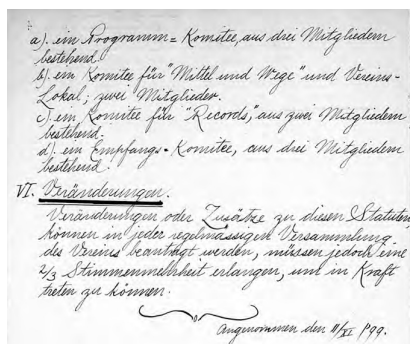 a). ein Programm = Komitee, aus drei Mitgliedern
bestehend.
b). ein Komitee für "Mittel und Wege" und Vereins-
Lokal; zwei Mitglieder.
c). ein Komitee für "Records," aus zwei Mitgliedern
bestehend.
d). ein Empfangs-Komitee, aus drei Mitgliedern
bestehend.
VI. Veränderungen.
Veränderungen oder Zusätze zu diesen Statuten,
können in jeder regelmässigen Versammlung
des Vereins beantragt werden, müssen jedoch eine
2/3 Stimmenmehrheit erlangen, um in Kraft
treten zu können.
Angenommen den 11/XI 1899.